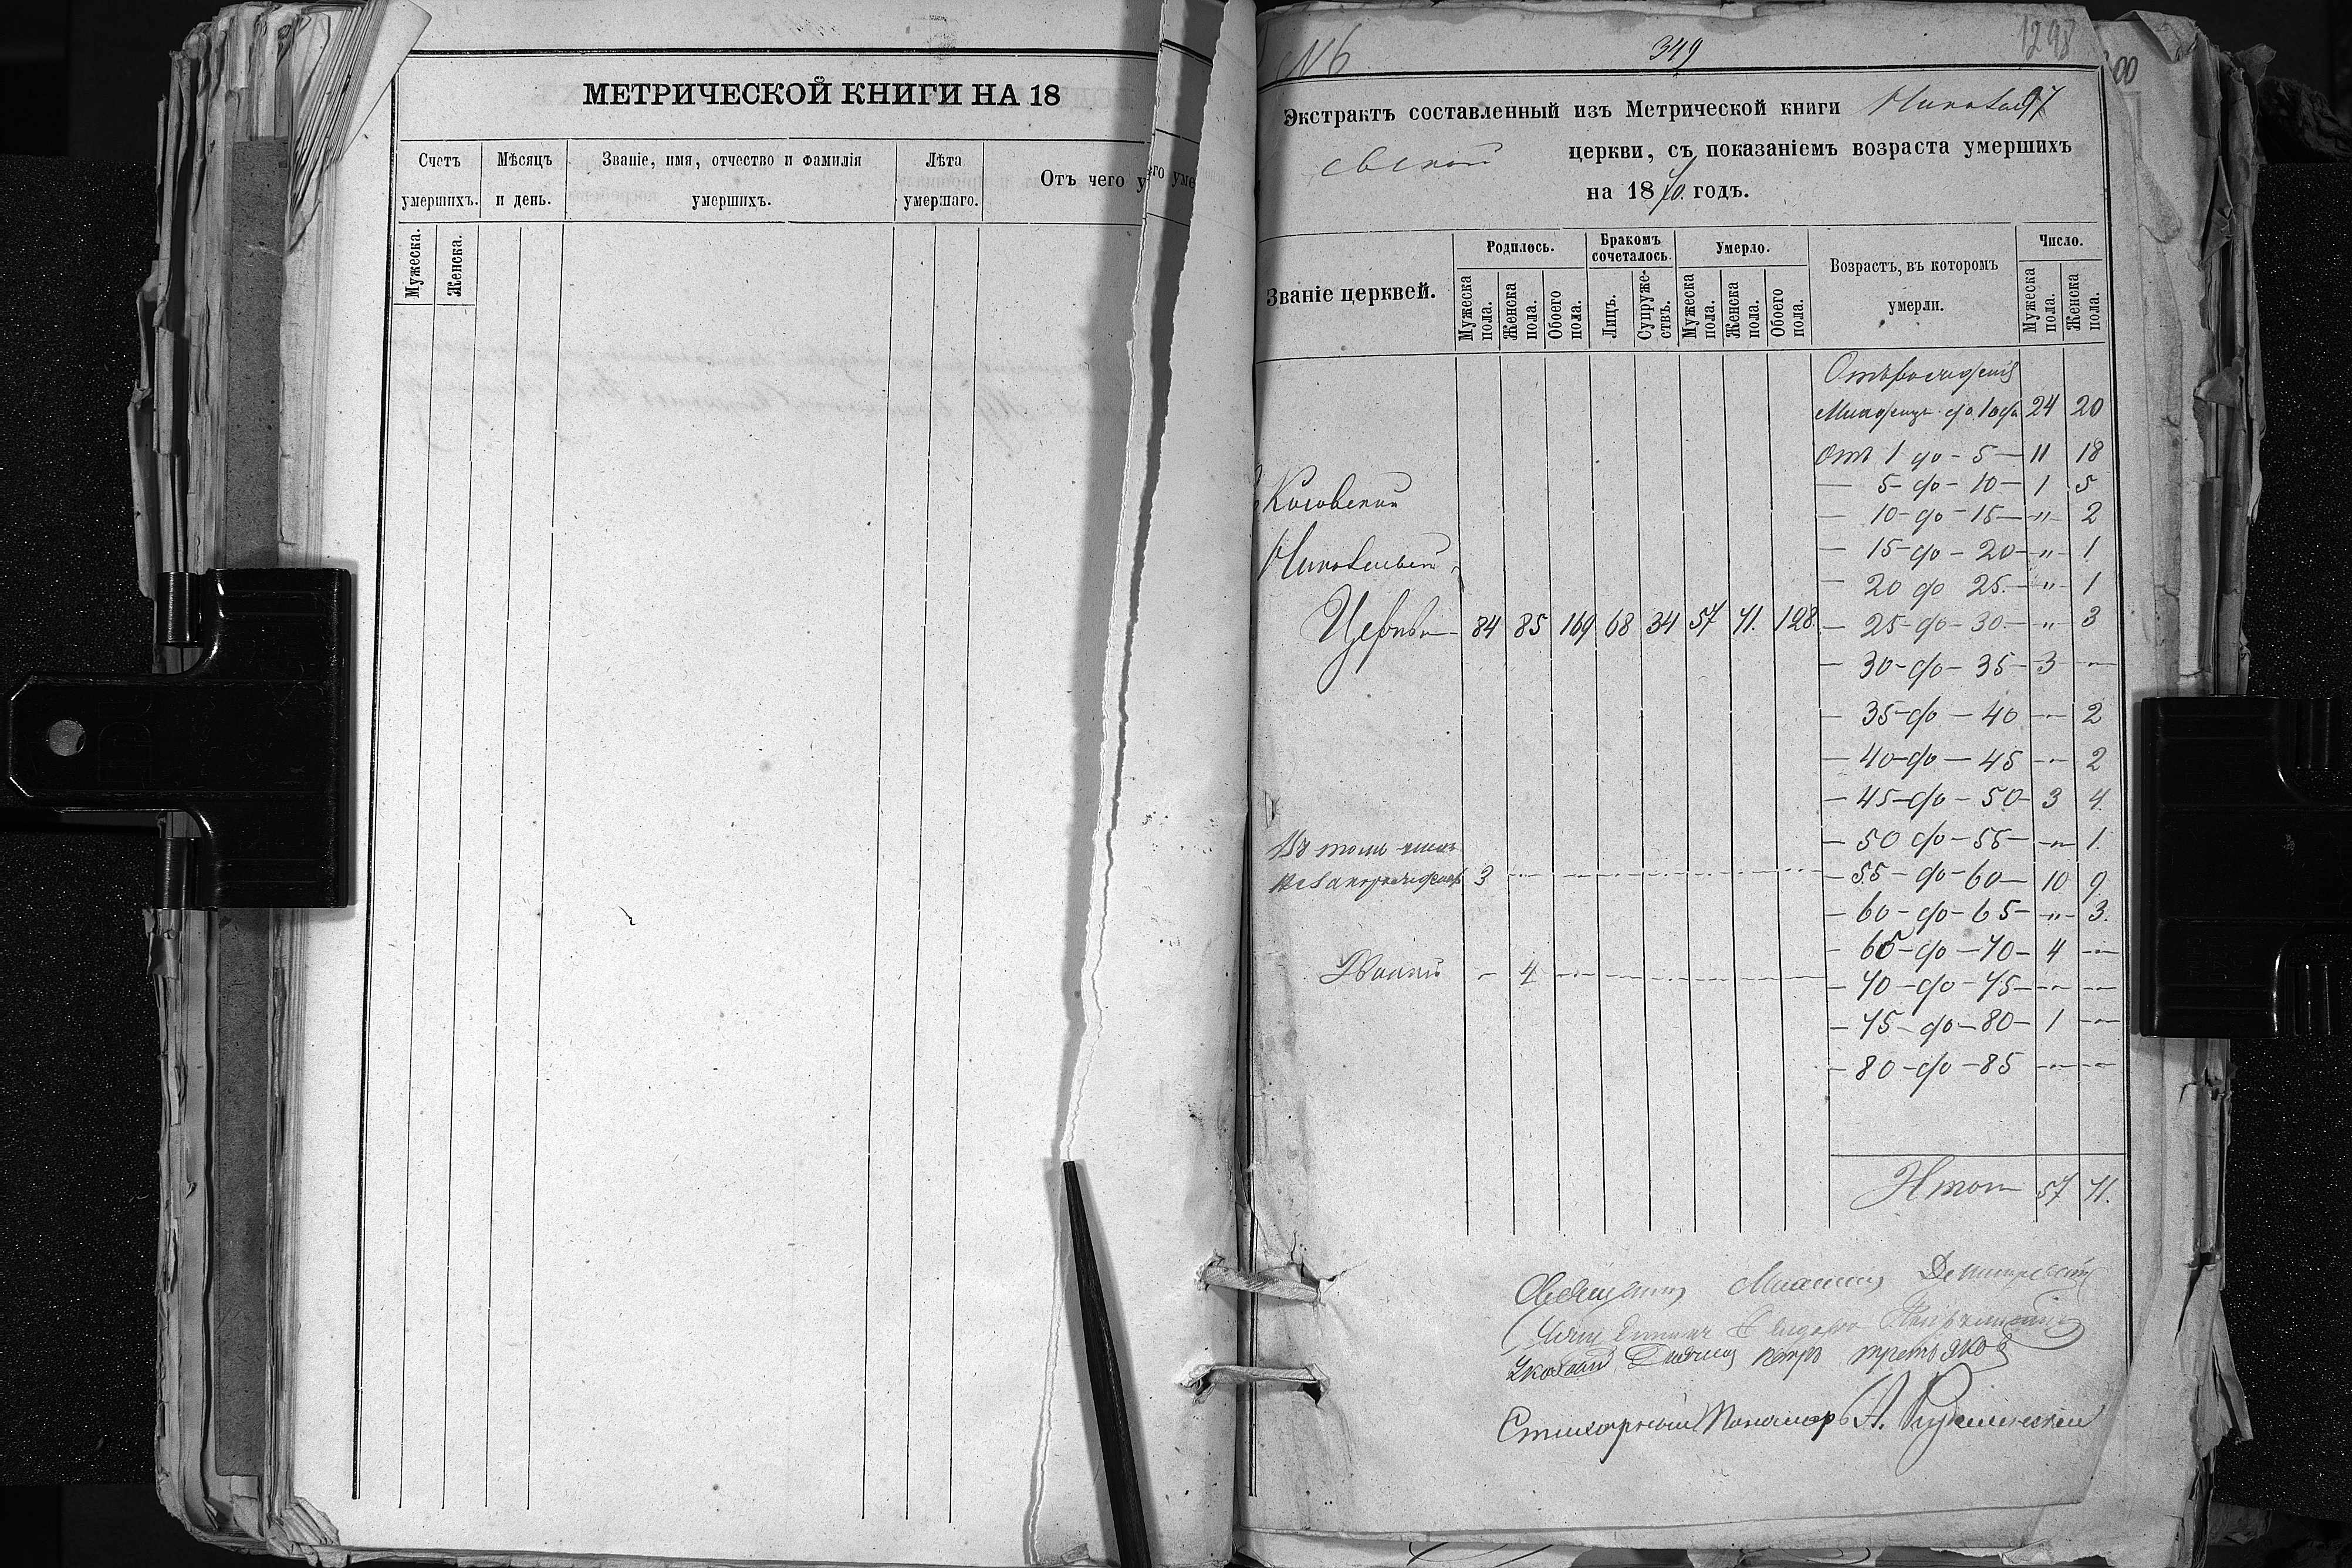 МЕТРИЧЕСКОЙ КНИГИ НА 18
Счетъ умершихъ.
Мѣсяцъ и день.
Званіе, имя, отчество и фамилія умершихъ.
Лѣта умершаго.
Отъ чего у
го уме
Мужеска.
Женска.
N 6
349
1298
97
00
Экстрактъ составленный изъ Метрической книги Никола
евской церкви, съ показаніемъ возраста умершихъ
на 1870. годъ.
Званіе церквей.
Родилось.
Бракомъ сочеталось.
Умерло.
Возрастъ, въ которомъ умерли.
Число.
Мужеска пола.
Женска пола.
Обоего пола.
Лицъ.
Супружествъ.
Мужеска пола.
Женска пола.
Обоего пола.
Мужеска пола.
Женска пола.
Отъ рожденія
Младенцъ до 1 года 24 20
Отъ 1 до - 5 — 11 18
— 5 - до - 10 — 1 5
— 10 - до - 15 — " — 2
— 15 - до - 20 — " — 1
— 20 до 25. — " — 1
Николаевской
Церкви — 84 85 169 68 34 57 71. 128 — 25 - до - 30 — " — 3
— 30 - до - 35 — 3 — " —
— 35 - до - 40 — " — 2
— 40 - до - 45 — " — 2
— 45 - до - 50 — 3 4.
Въ томъ числѣ — 50 до - 55 — " — 1.
незаконорожден 3 — 55 - до - 60 — 10 9.
— 60 - до - 65 — " — 3.
— 65 - до - 70 — 4 — " —
Двойни — 4 — 70 - до - 75 — " — " —
— 75 - до - 80 — 1 — " —
— 80 - до - 85 — " — " —
Итого 57 71.
Священникъ
Петръ Третьяковъ
Стихарный Пономарь А.